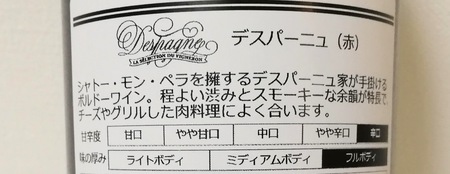 Despagne
LA SÉLECTION DU VIGNERON
デスパーニュ（赤）
シャトー・モン・ペラを擁するデスパーニュ家が手掛ける
ボルドーワイン。程よい渋みとスモーキーな余韻が特長で、
チーズやグリルした肉料理によく合います。
甘辛度 甘口 やや甘口 中口 やや辛口 辛口
味の厚み ライトボディ ミディアムボディ フルボディ